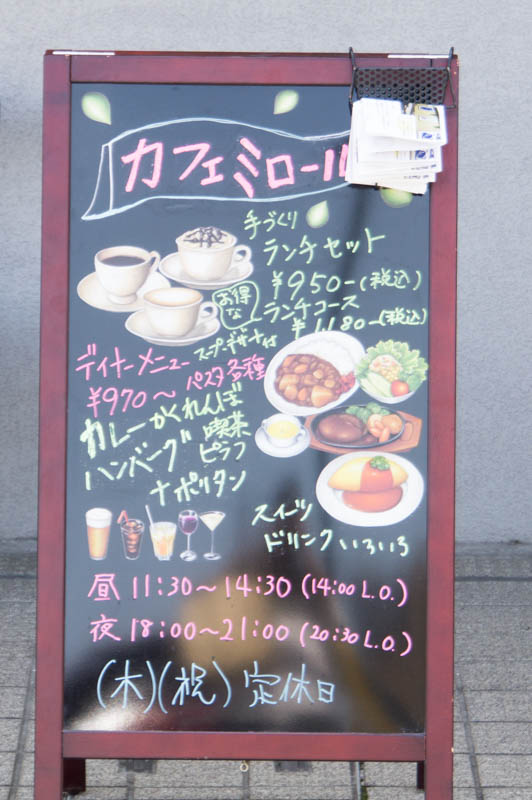 カフェミロール
手づくり
ランチセット
¥950-(税込)
お得な
ランチコース
¥1180-(税込)
スープ・デザート付
ディナーメニュー
¥970〜 パスタ各種
カレー かくれんぼ
ハンバーグ 喫茶
ピラフ
ナポリタン
スイーツ
ドリンクいろいろ
昼 11:30〜14:30 (14:00 L.O.)
夜 18:00〜21:00 (20:30 L.O.)
(木)(祝) 定休日